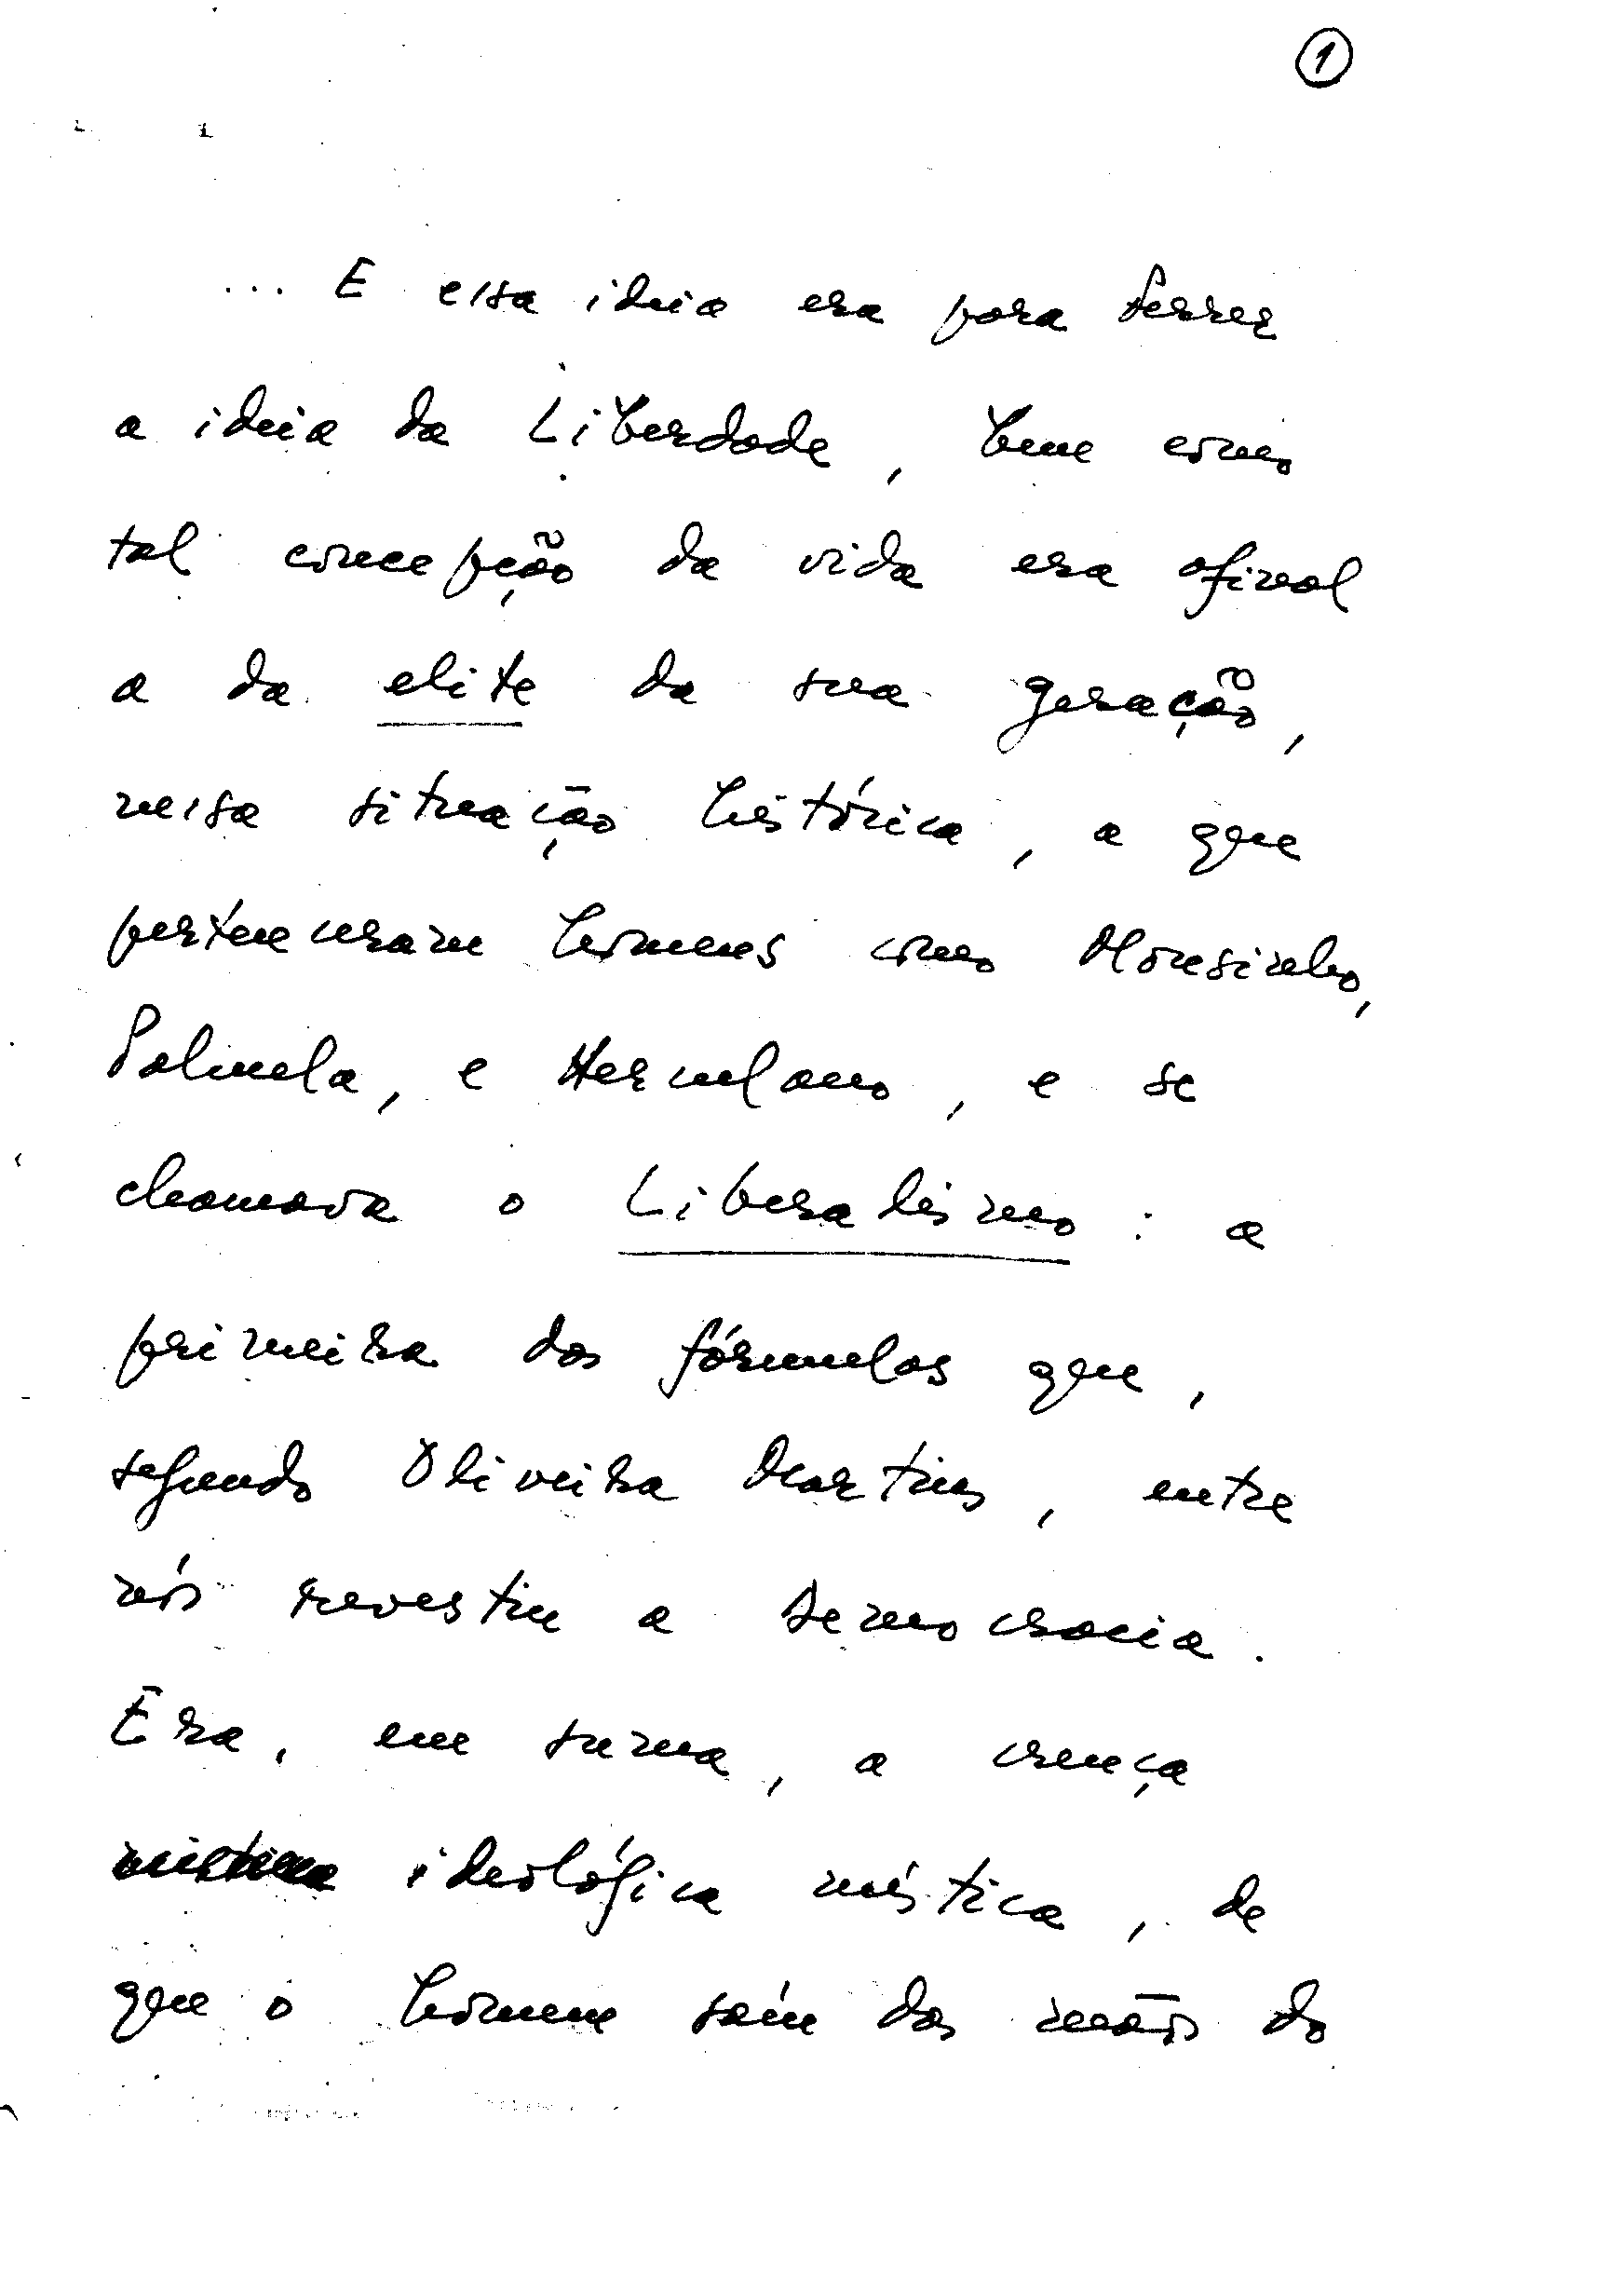 1
... E essa ideia era para Ferrer
a ideia da Liberdade, bem como
tal concepção da vida era afinal
a da elite da sua geração,
nessa situação histórica, a que
pertenceram homens como Mousinho,
Palmela, e Herculano, e se
chamava o Liberalismo: a
primeira das fórmulas que,
segundo Oliveira Martins, entre
nós revestiu a democracia.
Era, em suma, a crença
ideológica mística, de
que o homem saíu das mãos do